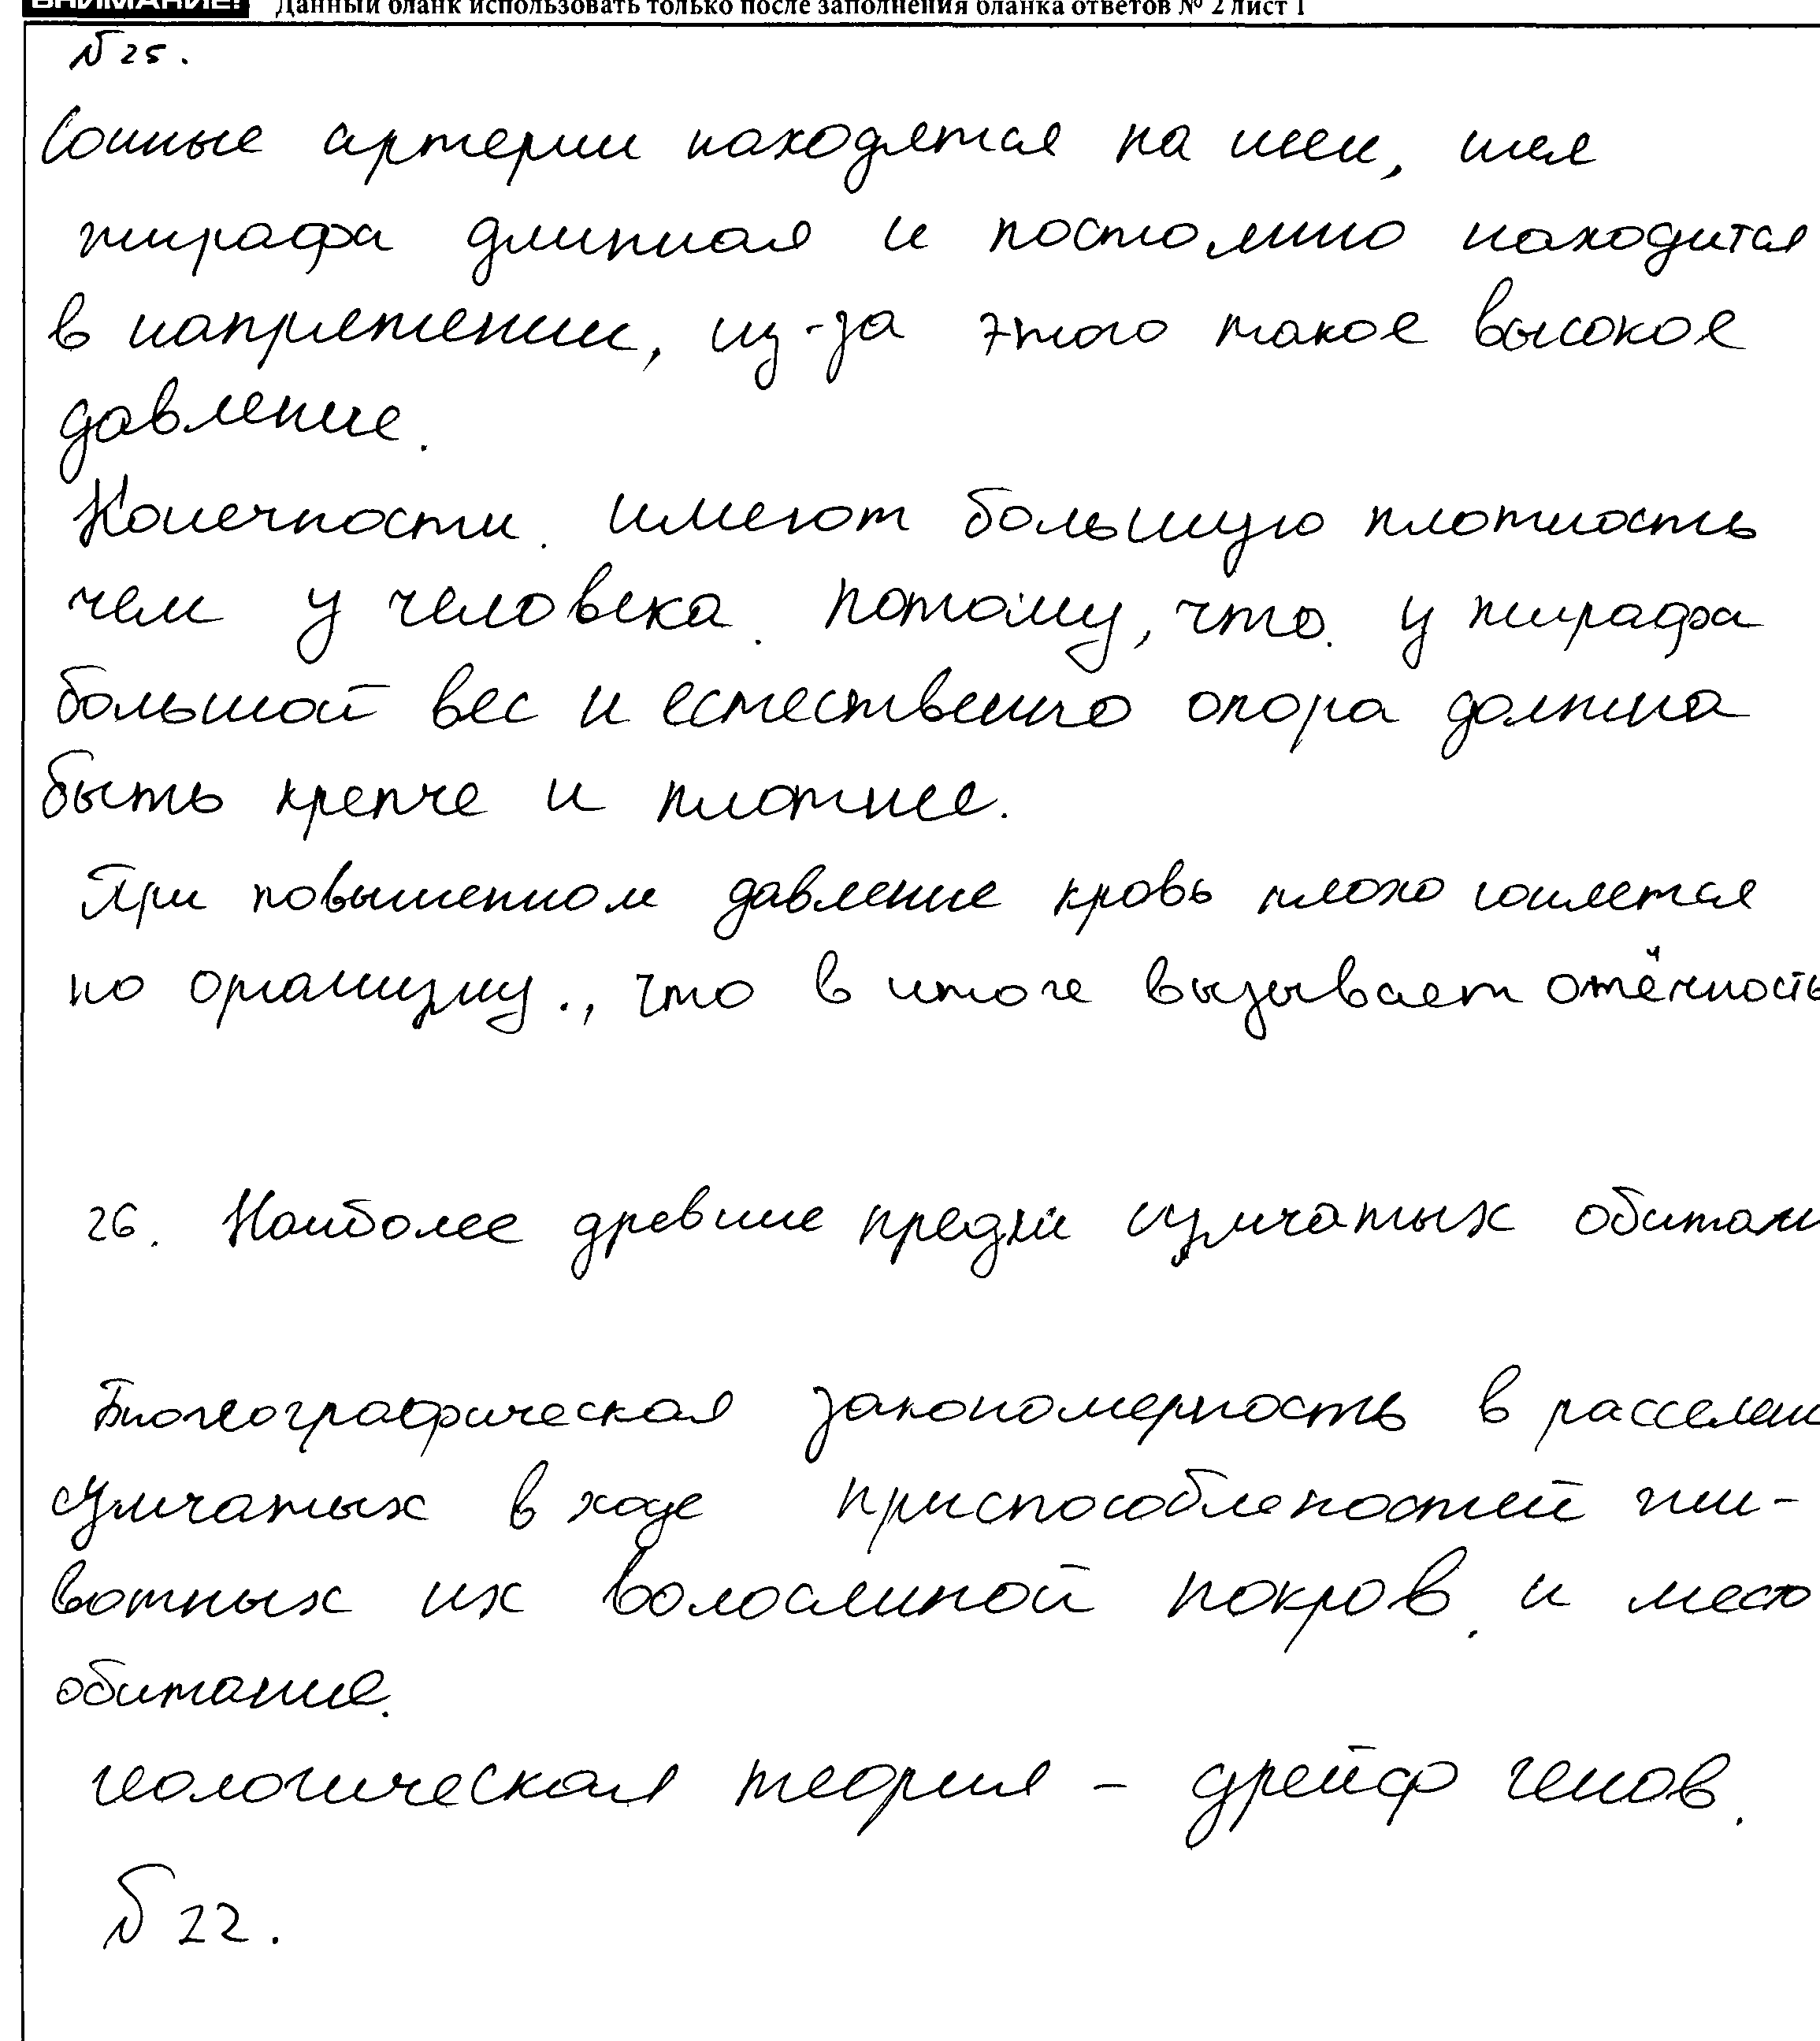 ВНИМАНИЕ! Данный бланк использовать только после заполнения бланка ответов № 2 лист 1
№ 25.
Сонные артерии находятся на шеи, шея
жирафа длинная и постоянно находится
в напряжении, из-за этого такое высокое
давление.
Конечности имеют большую плотность
чем у человека. потому, что у жирафа
большой вес и естественно опора должна
быть крепче и плотнее.
При повышенном давление кровь плохо гоняется
по организму., что в итоге вызывает отёчность
26. Наиболее древние предки сумчатых обитали
Биогеографическая закономерность в расселени
сумчатых в ходе приспособленостей жи-
вотных их волосяиной покров. и место
обитание.
геологическая теория – дрейф генов.
№ 22.